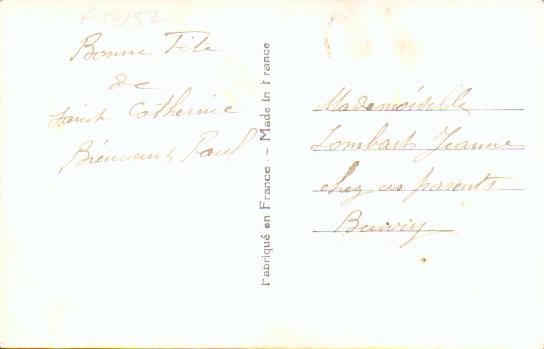 F 13152
Bonne Fête
de
Saint Catherine
Paul
Fabriqué en France. — Made in France
Mademoiselle
Lombart Jeanne
chez ses parents
Beuvry